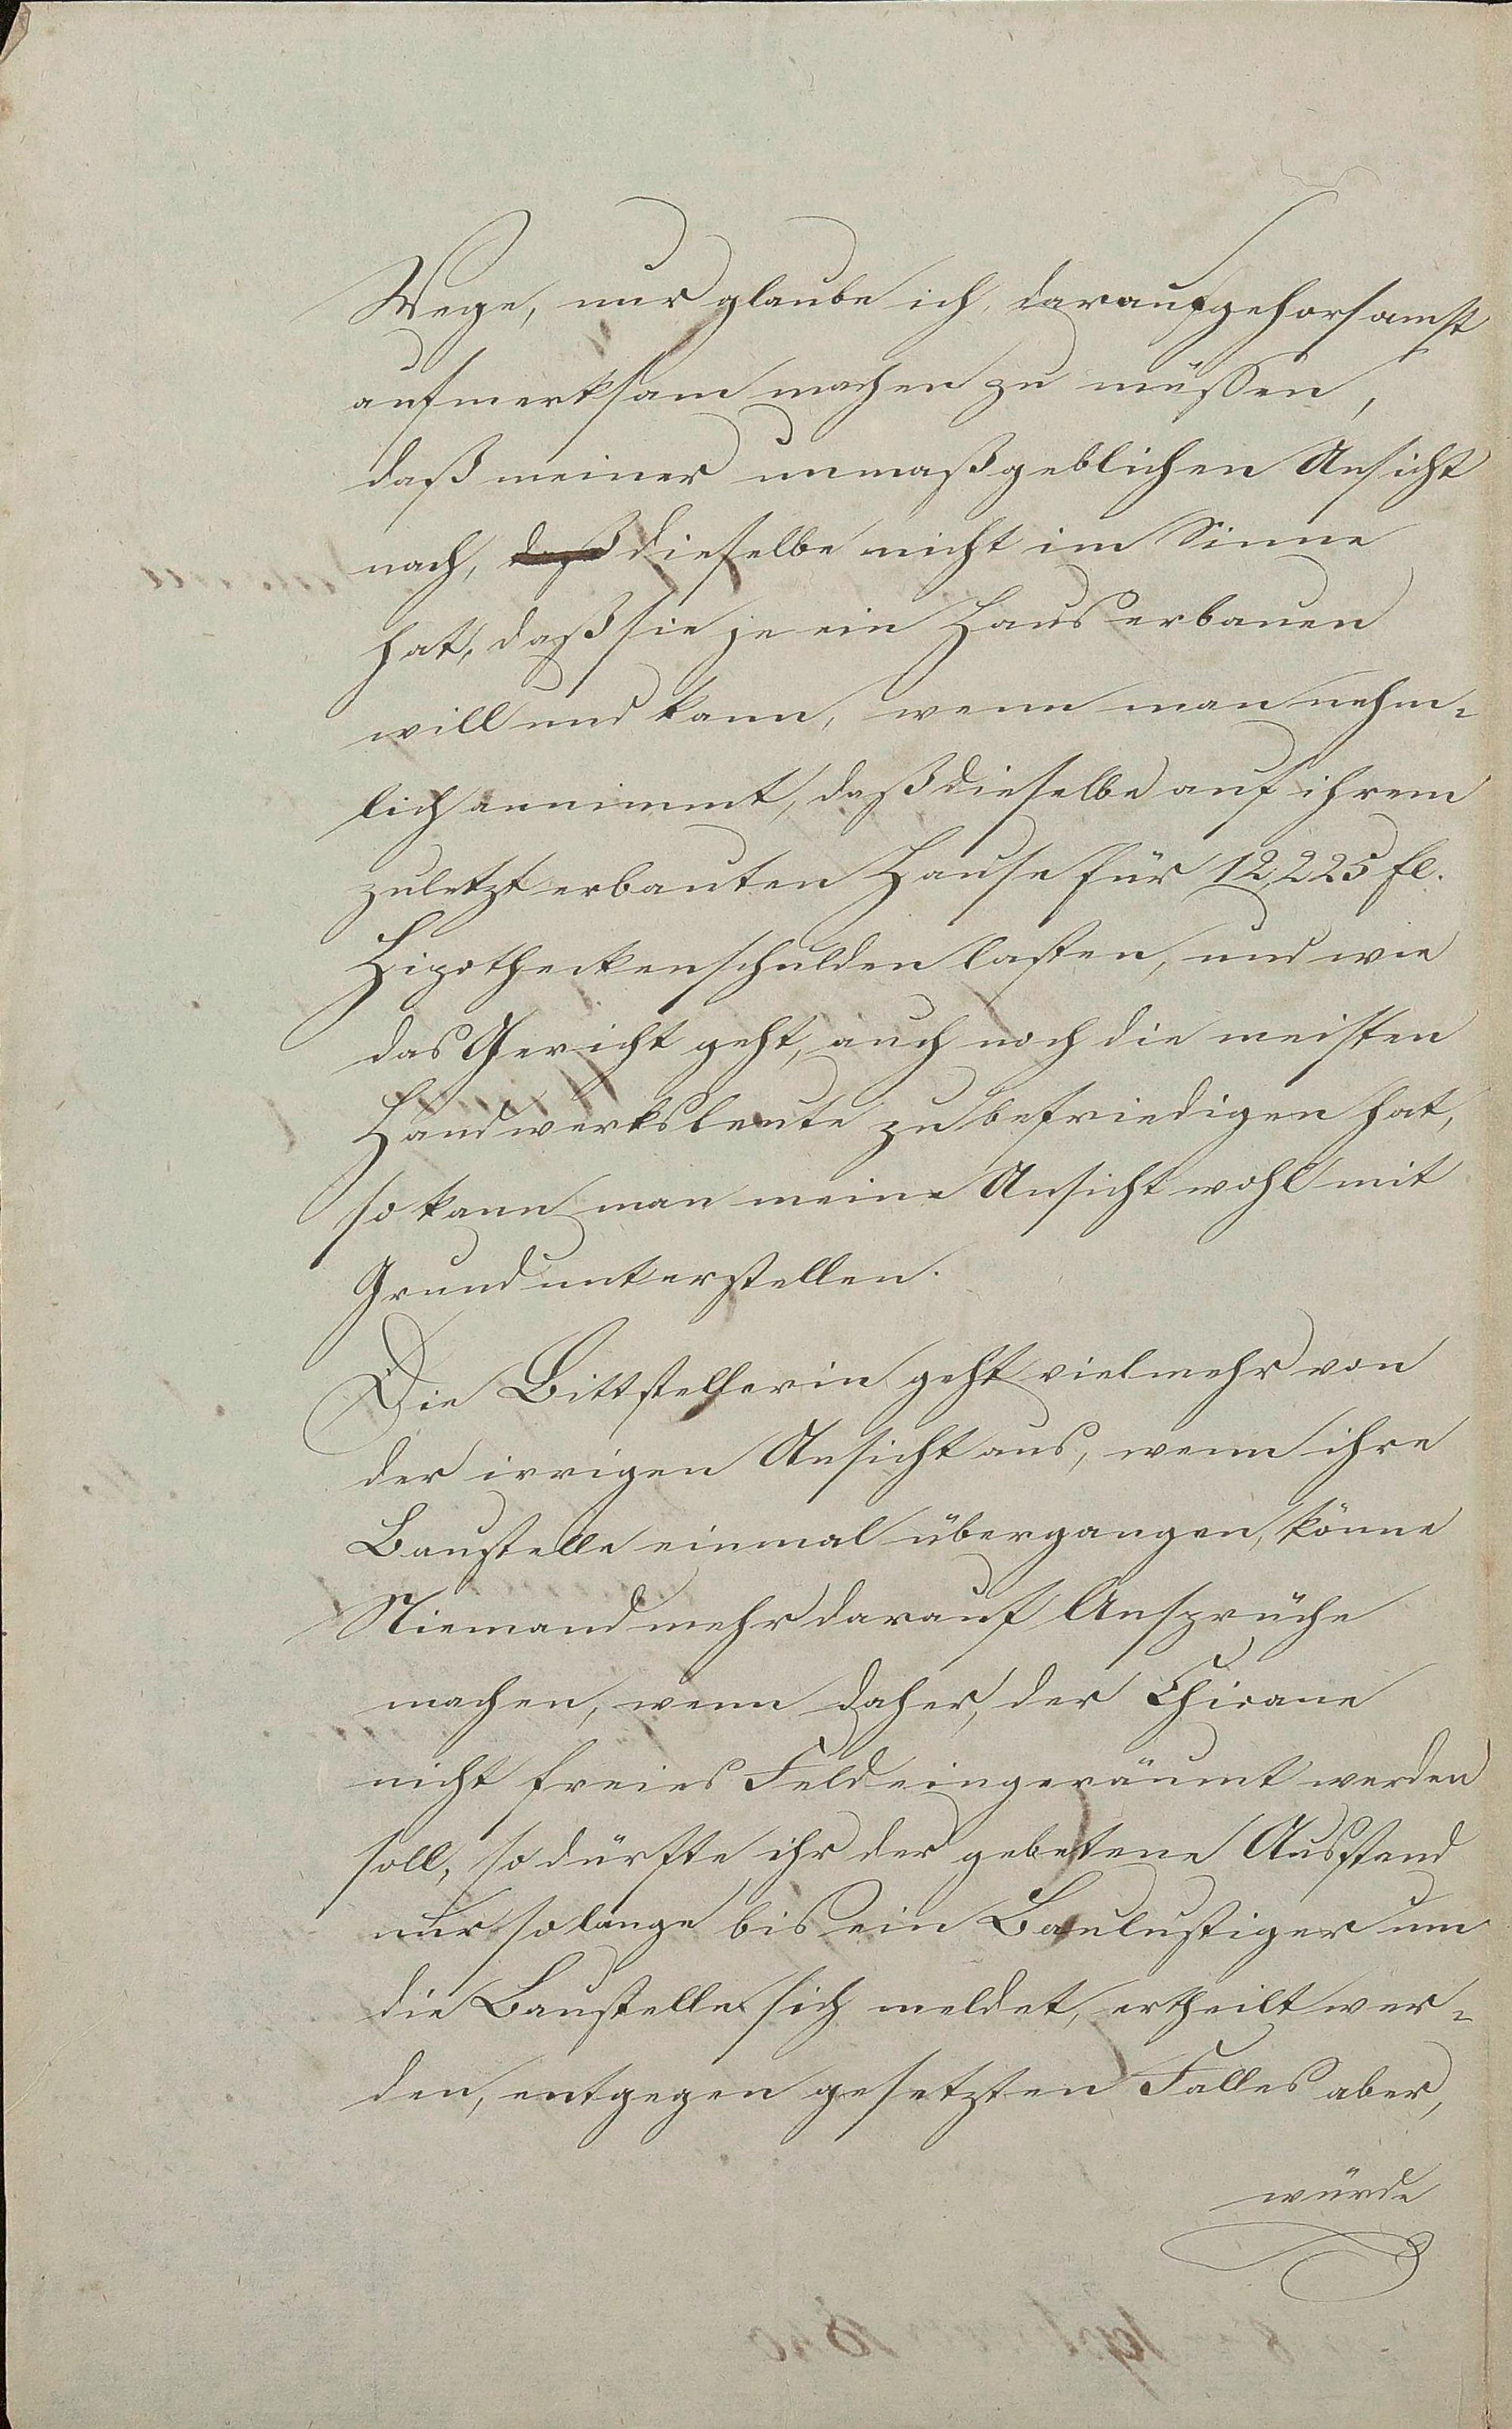 Wege, nur glaube ich, darauf gehorsamst
aufmerksam machen zu müssen,
daß meiner unmaßgeblichen Ansicht
nach, daß dieselbe nicht im Sinne
hat, daß sie je ein Haus erbauen
will und kann, wenn man nehm-
lich annimmt, daß dieselbe auf ihrem
zuletzt erbauten Hause für 12,225 fl.
Hipotheckenschulden lasten, und wie
das Gericht geht, auch noch die meisten
Handwerksleute zu befriedigen hat,
so kann man meine Ansicht wohl mit
Grund unterstellen.
Die Bittstellerin geht vielmehr von
der irrigen Ansicht aus, wenn ihre
Baustelle einmal übergangen, könne
Niemand mehr darauf Ansprüche
machen, wenn daher, der Chicane
nicht freies Feld eingeräumt werden
soll, so dürfte ihr der gebetene Ausstand
nur solange bis ein Baulustiger um
die Baustelle sich meldet, ertheilt wer-
den, entgegen gesetzten Falles aber,
würde